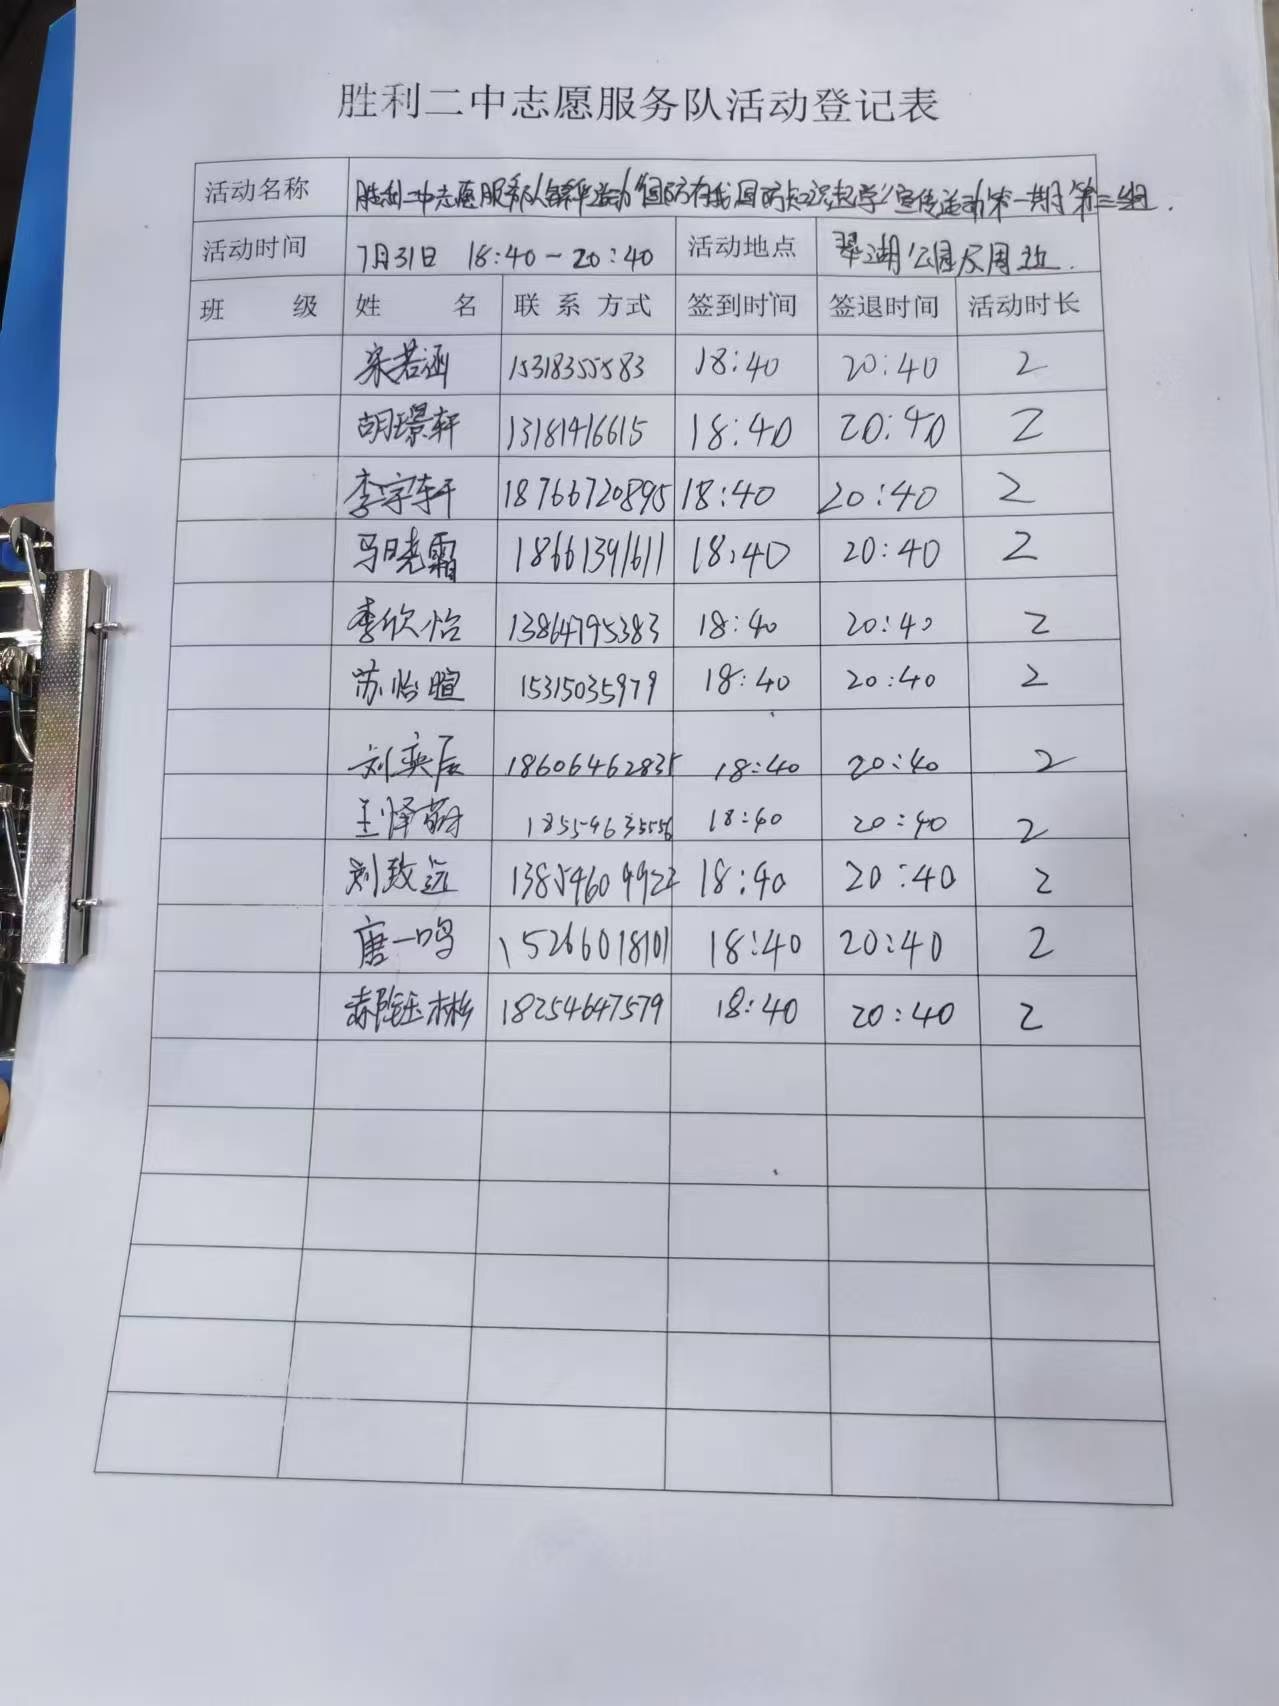 胜利二中志愿服务队活动登记表
活动名称 胜利二中志愿服务队 活动"国防有我 国防知识起学"宣传活动第一期第三组.
活动时间 7月31日 18:40-20:40 活动地点 翠湖公园及周边.
班 级 姓 名 联系方式 签到时间 签退时间 活动时长
宋若涵 15318355583 18:40 20:40 2
胡璟轩 13181416615 18:40 20:40 2
李宇轩 18766720895 18:40 20:40 2
马晓霜 18661391611 18:40 20:40 2
李欣怡 13864795383 18:40 20:40 2
苏怡暄 15315035979 18:40 20:40 2
刘奕辰 18606462835 18:40 20:40 2
王怿蔚 18554635556 18:40 20:40 2
刘致远 13854609923 18:40 20:40 2
唐一鸣 15266018101 18:40 20:40 2
彬 18254647579 18:40 20:40 2